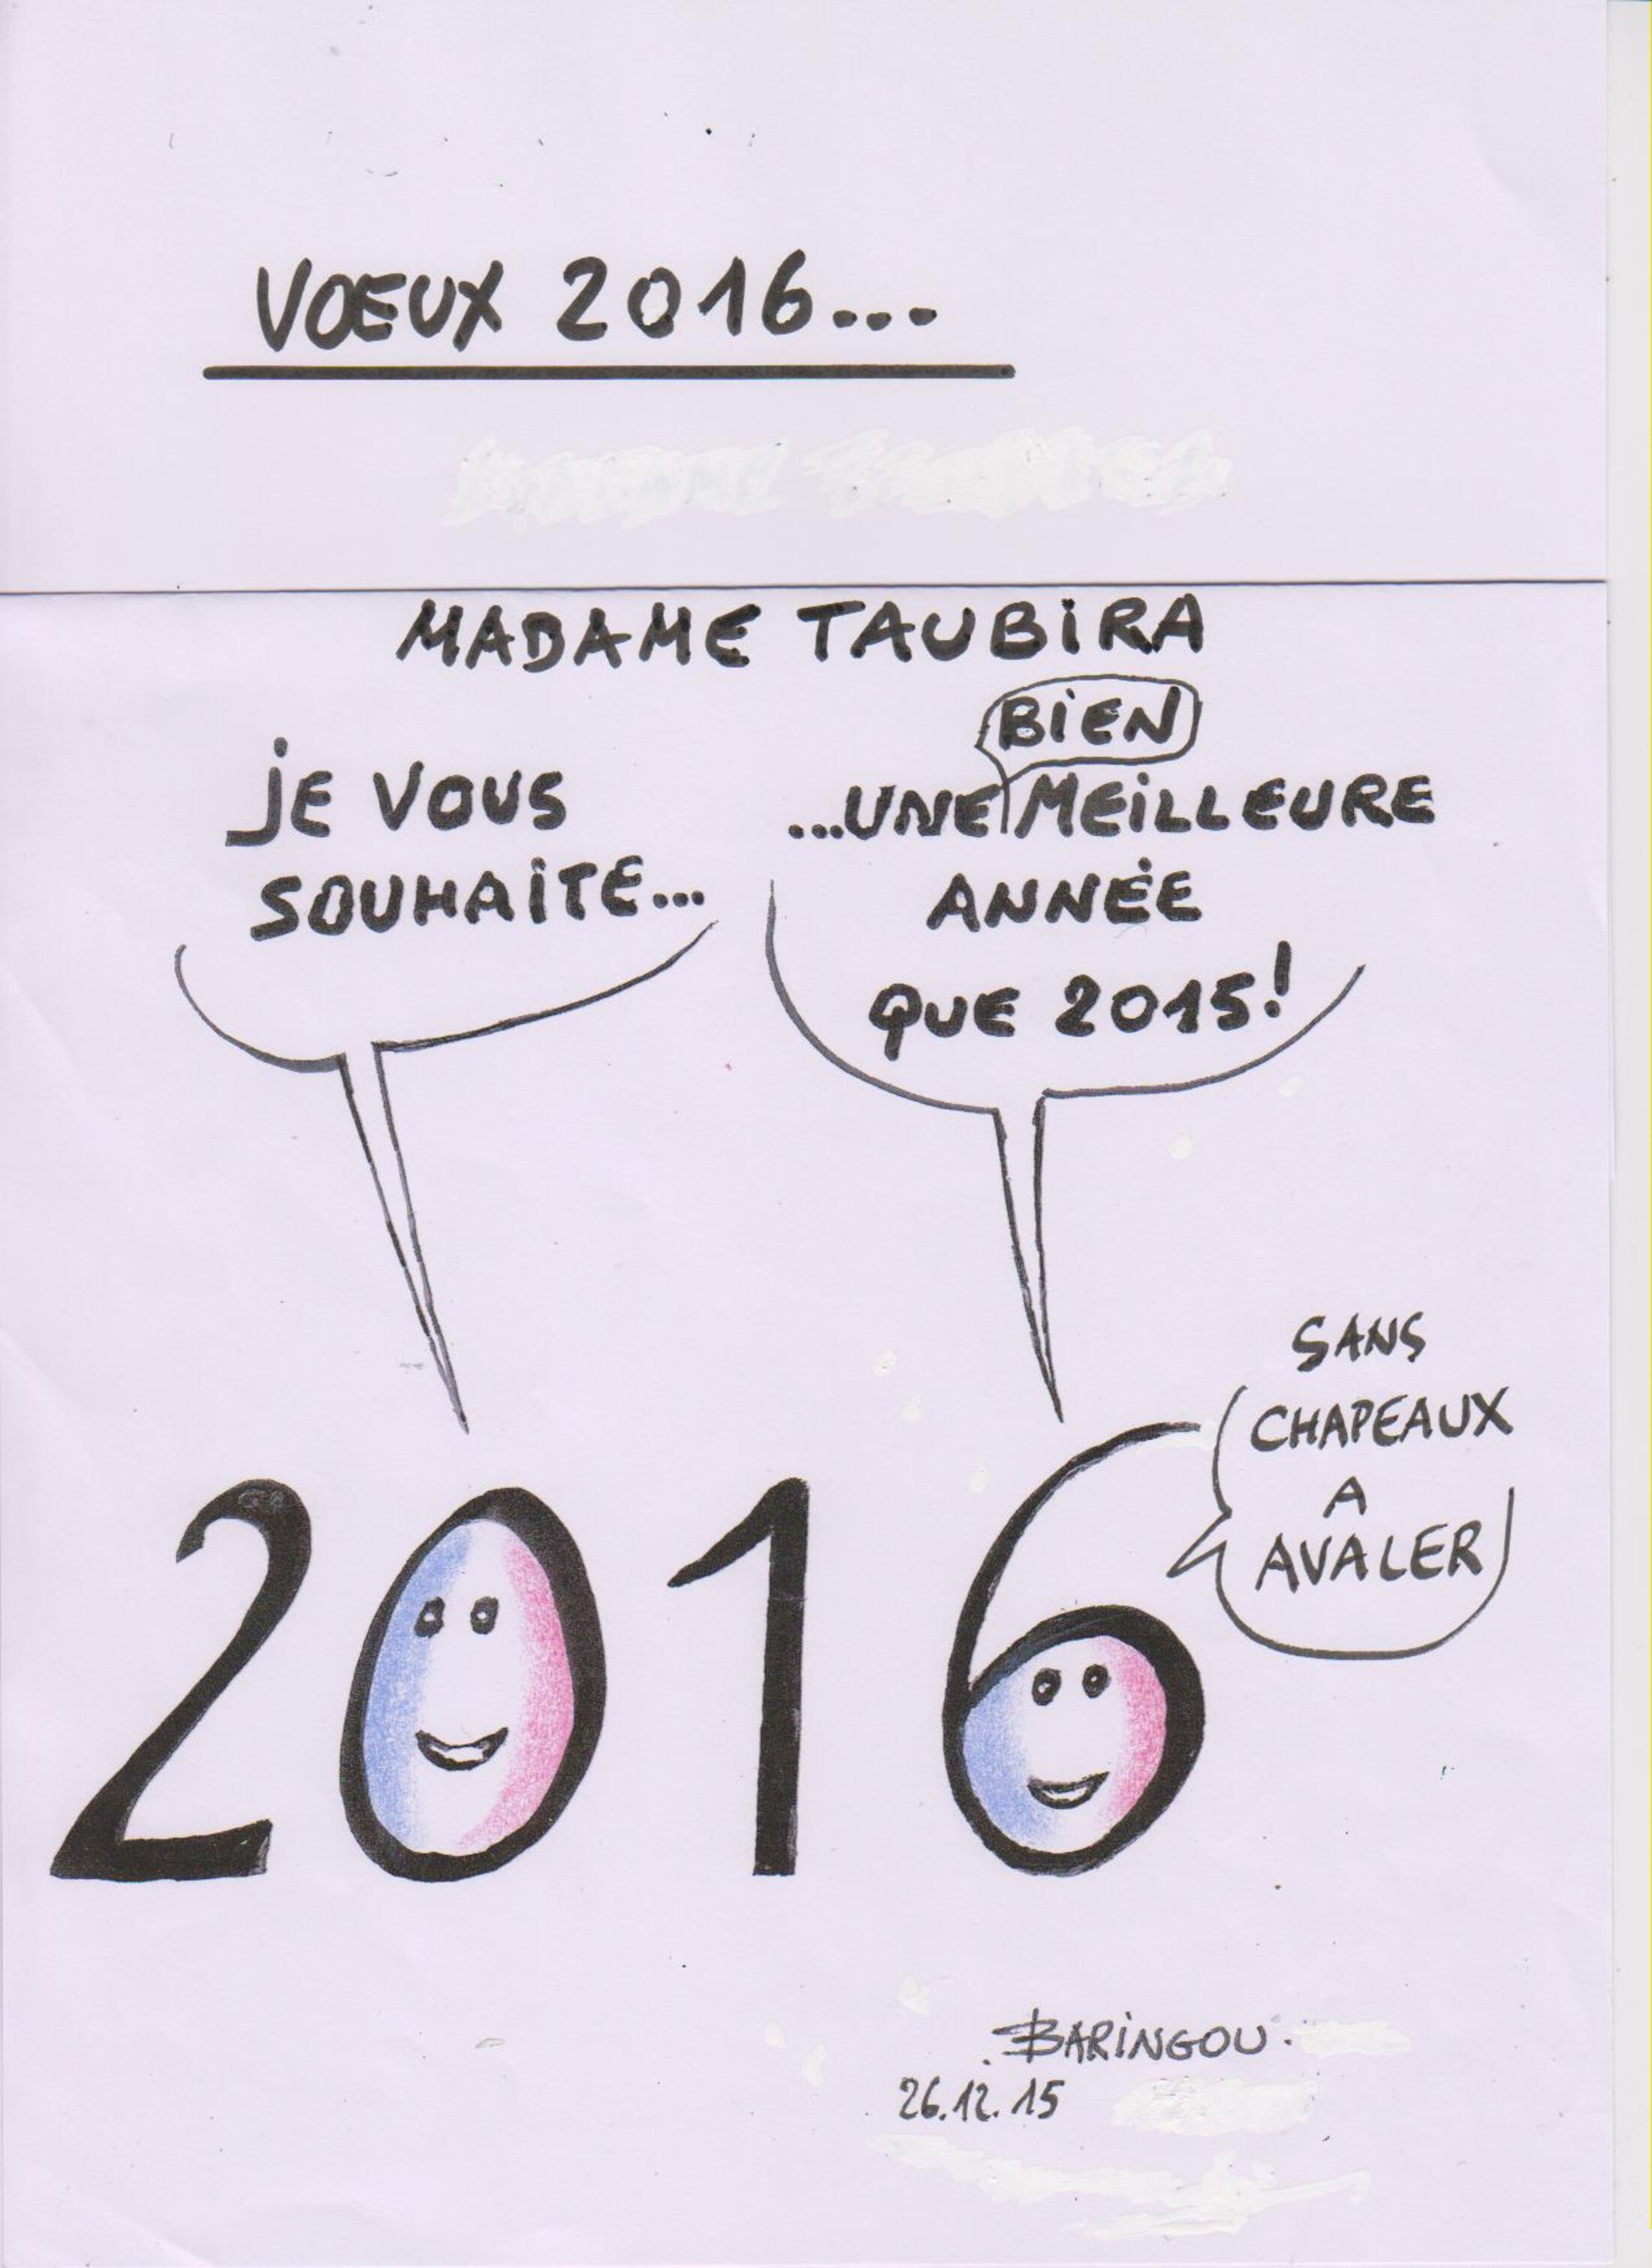 VOEUX 2016...
MADAME TAUBIRA
JE VOUS
SOUHAITE...
BIEN
...UNE MEILLEURE
ANNÉE
QUE 2015!
SANS
CHAPEAUX
A
AVALER
2016
BARINGOU.
26.12.15